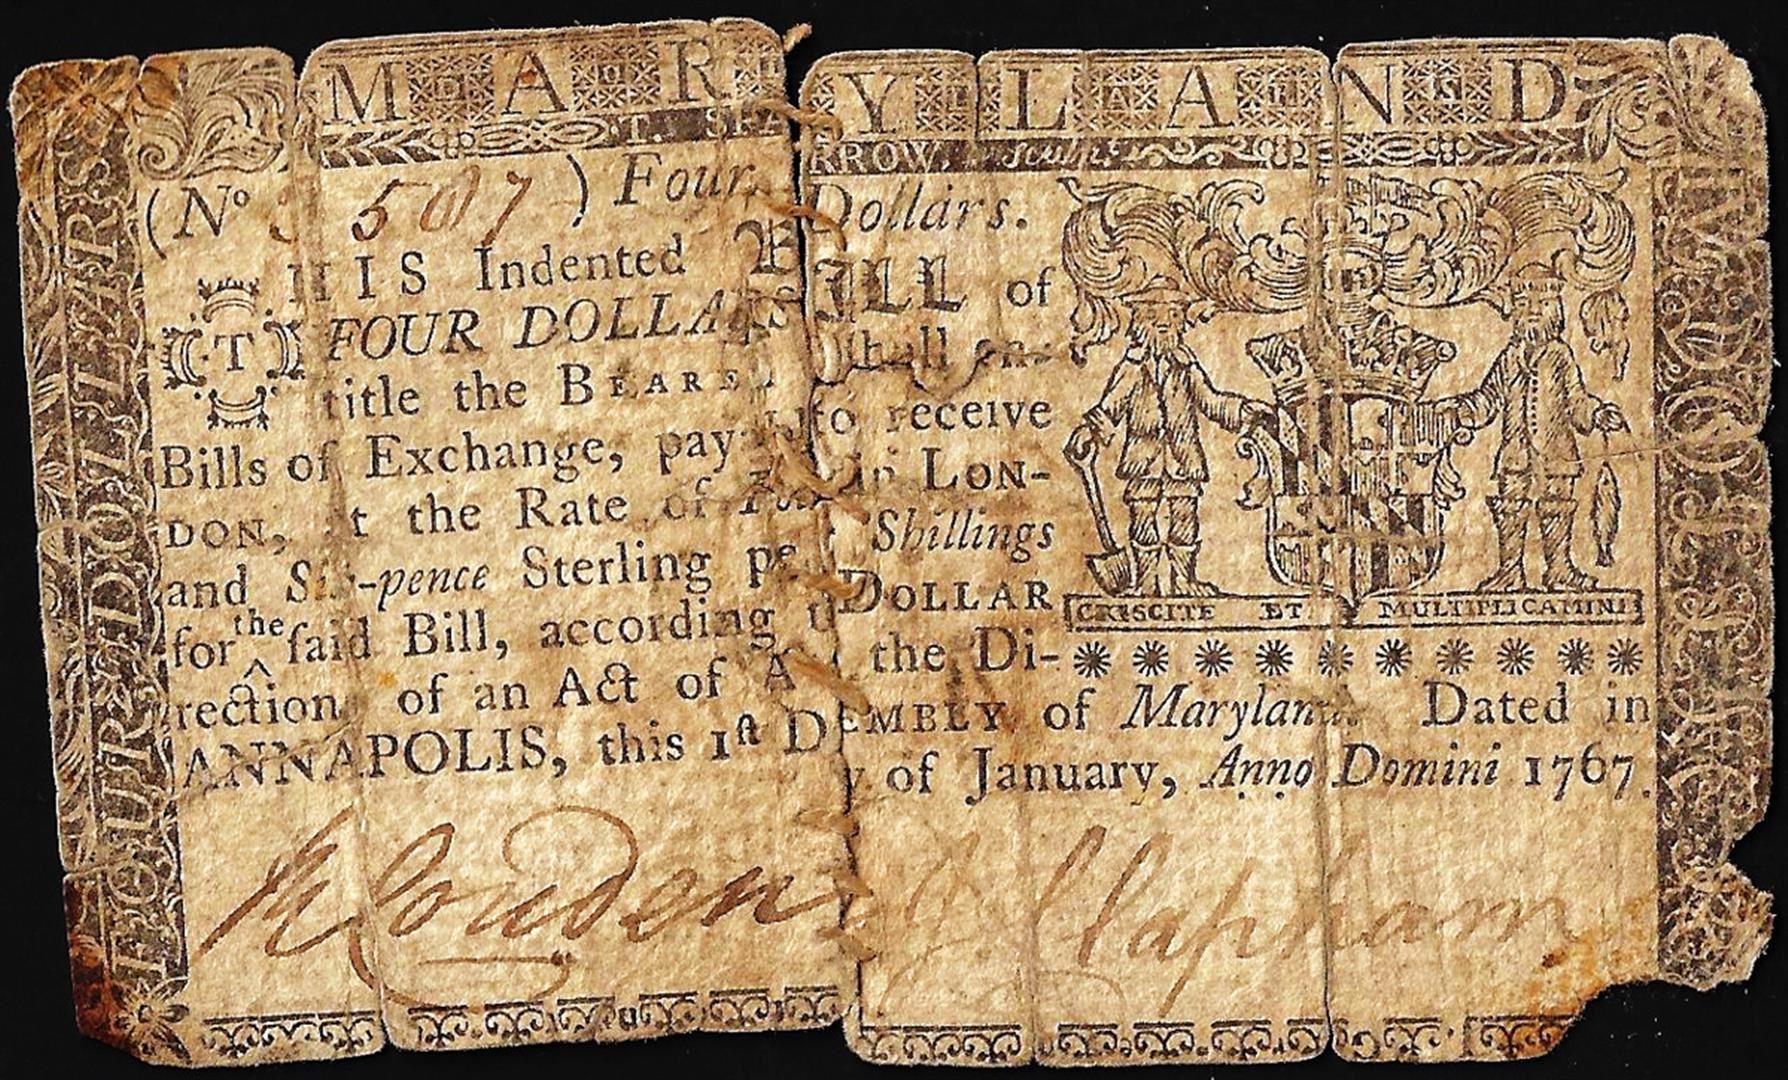 MARYLAND
T. SPARROW, Sculpsit
(No 587) Four Dollars.
THIS Indented BILL of
FOUR DOLLARS shall en-
title the BEARER to receive
Bills of Exchange, pay in LON-
DON, at the Rate of Shillings
and Six-pence Sterling per DOLLAR
for the ſaid Bill, according to the Di-
rection of an Act of ASSEMBLY of Maryland. Dated in
ANNAPOLIS, this 1ſt Day of January, Anno Domini 1767.
CRESCITE ET MULTIPLICAMINI
Clapham
FOUR DOLLARS
IV DOLLARS